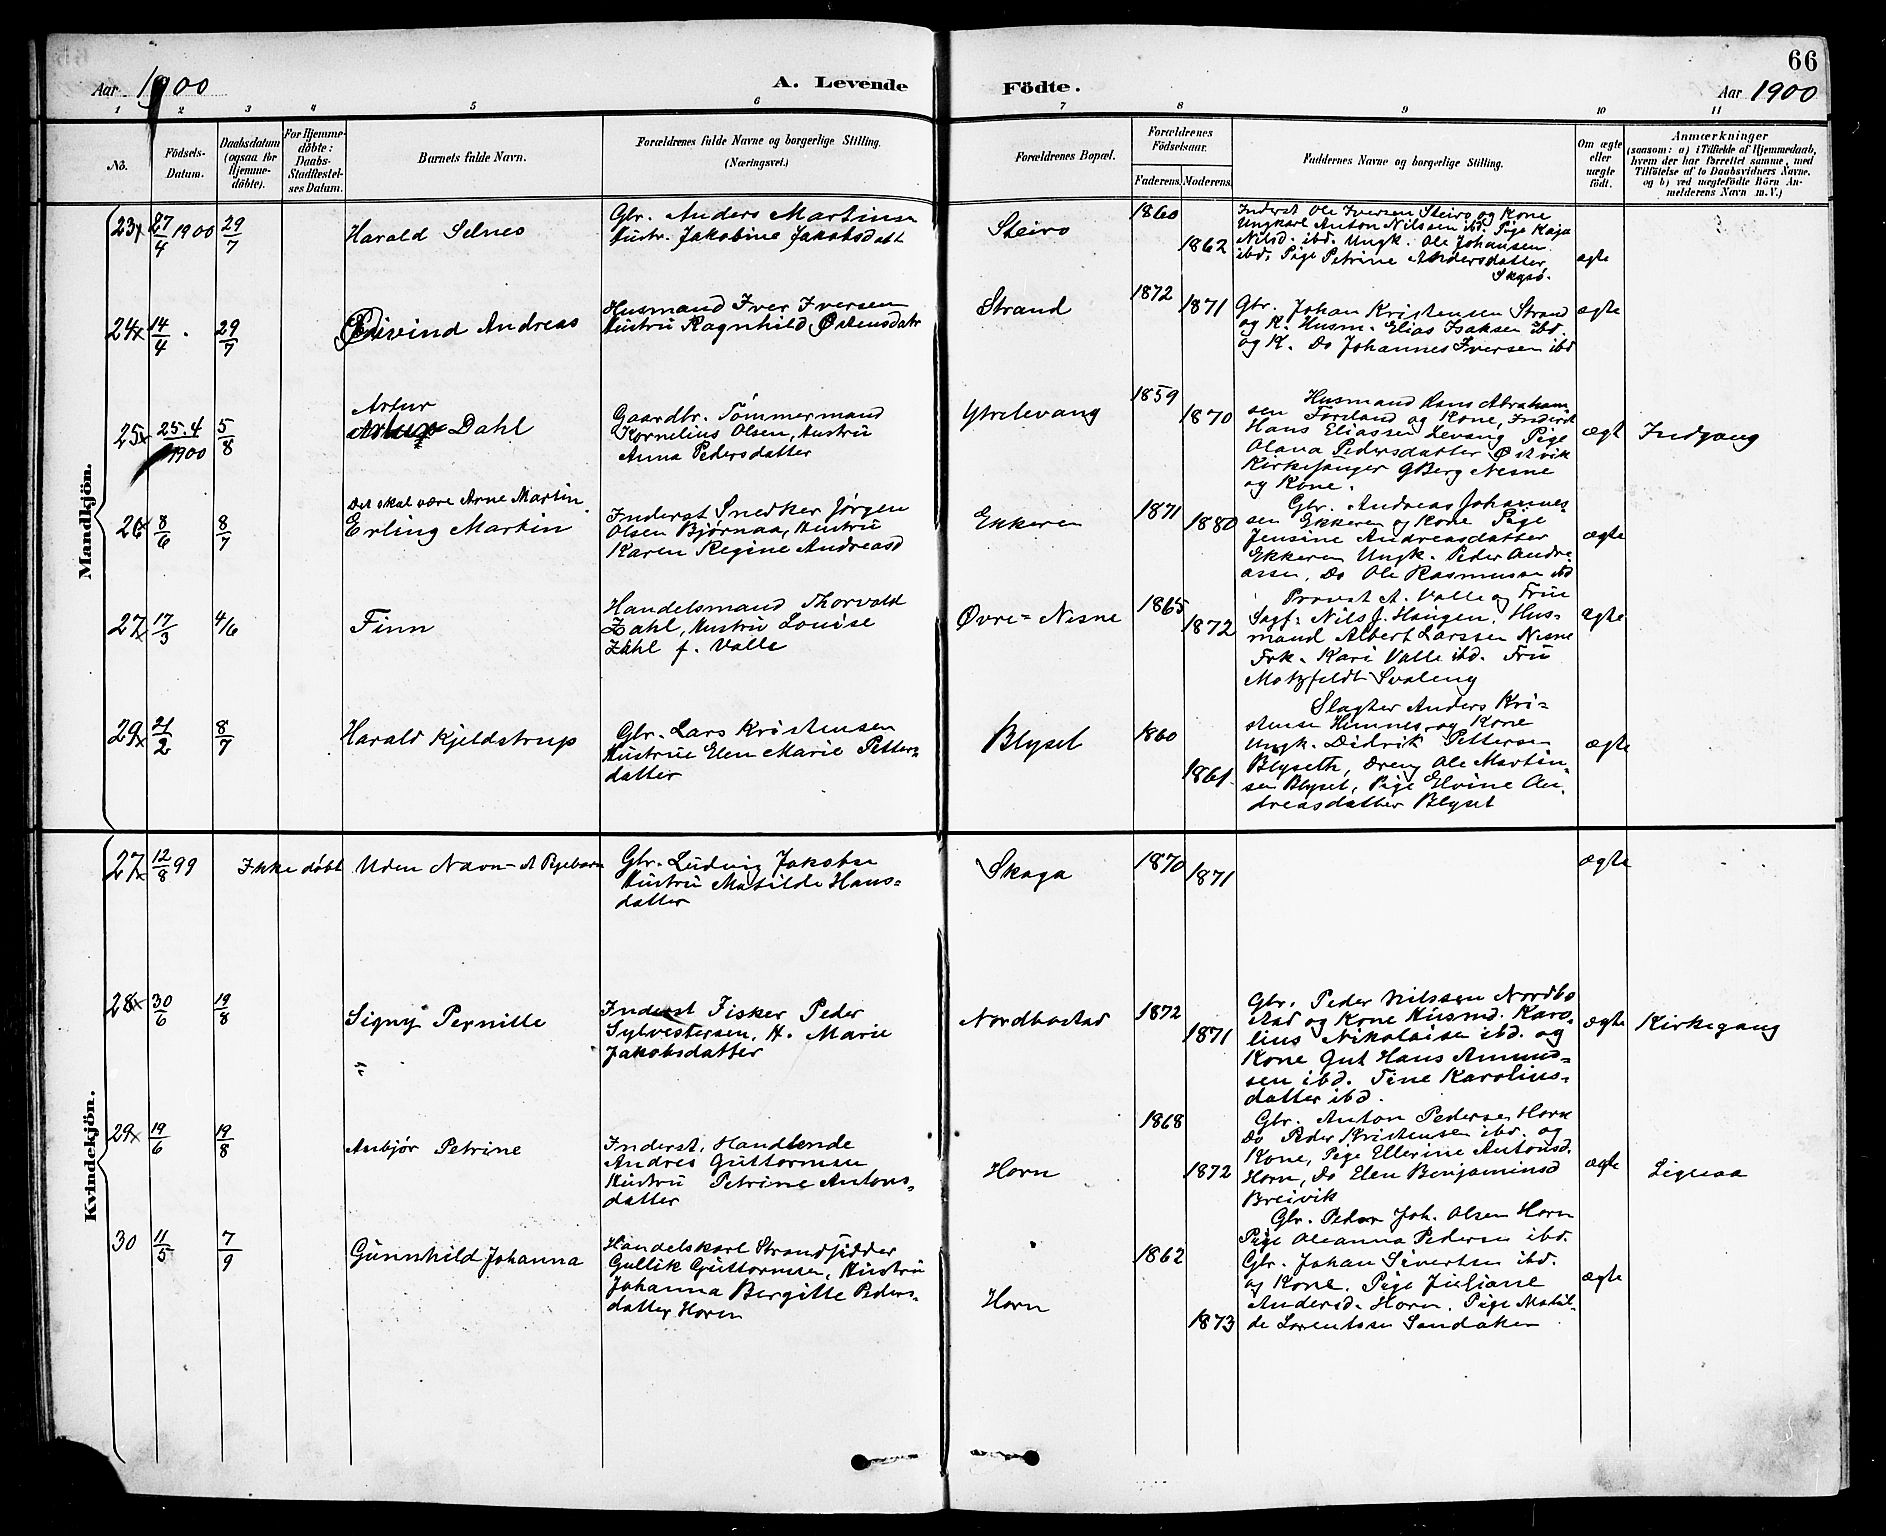 66
Aar 1900
A. Levende
Födte.
Aar 1900
1 2 3 4 5 6 7 8 9 10 11
No.
Födsels-
Datum.
Daabsdatum
(ogsaa for
Hjemme-
döbte).
For Hjemme-
döbte:
Daabs-
Stadfæstel-
ses Datum.
Barnets fulde Navn.
Forældrenes fulde Navne og borgerlige Stilling.
(Næringsvei.)
Forældrenes Bopæl.
Forældrenes
Födselsaar.
Faderens. Moderens.
Faddernes Navne og borgerlige Stilling.
Om ægte
eller
uægte
födt.
Anmærkninger
(saasom: a) i Tilfælde af Hjemmedaab,
hvem der har forrettet samme, med
Tilföielse af to Daabsvidners Navne,
og b) ved uægtefödte Börn An-
melderens Navn m. V.)
Mandkjön.
23x 27/4 1900 29/7
Harald Selnes
Gbr. Anders Martinsn
Hustr. Jakobine Jakobsdatt
Steiro
1860
1862
Inderst Ole Iversen Steiro og Kone
Ungkarl Anton Nilssen ibd. Pige Kaja
Nilsd. ibd. Ungk. Ole Johansen
ibd. Pige Petrine Andersdatter
Skogsö.
ægte
24x 14/4 29/7
Eivind Andreas
Husmand Iver Iversen
Hustru Ragnhild Østensdatr
Strand
1872
1871
Gbr. Johan Kristensen Strand
og K. Husm. Elias Isaksen ibd.
og K. Do Johannes Iversen ibd
ægte
25x 25.4/1900 5/8
Artur
Dahl
Gaardbr. Tömmermand
Kornelius Olsen, Hustru
Anna Pedersdatter
Ytrelevang
1859
1870
Husmand Hans Abraham
sen Forsland og Kone, Inderst
Hans Eliassen Levang Pige
Olana Pedersdatter Østvik
Kirkesanger G Berg Nesne
og Kone.
ægt
Indgang
26x 8/6 8/7
Det skal være Arne Martin.
Erling Martin
Inderst Snedker Jørgen
Olsen Bjørnaa, Hustru
Karen Regine Andreasd
Ekkeren
1871
1880
Gbr. Andreas Johannes
sen Ekkeren og Kone Pige
Jensine Andreasdatter
Ekkeren Ungk. Peder Andre
assen, Do Ole Rasmussen ibd
ægte
27x 17/3 4/6
Finn
Handelsmand Thorvald
Zahl, Hustru Louise
Zahl f. Valle
Øvre-Nesne
1865
1872
Provst A. Valle og Frue
Sagf: Nils J. Haugen, Hus-
mand Albert Larssen Nesne
Frk. Kari Valle ibd. Fru
Motzfeldt Svaleng
ægte
29x 21/2 8/7
Harald Kjeldstrup
Gbr. Lars Kristensen
Hustrue Elen Marie Petters-
datter
Blyset
1860
1861.
Slagter Anders Kri-
stensen Hemnes og Kone
Ungk. Didrik Pettersen
Blyseth, Dreng Ole Martin-
sen Blyset, Pige Elvine An-
dreasdatter Blyset
ægte
Kvindekjön.
27x 12/8 99 Ikke döbt
Uden Navn- A Pigebarn
Gbr. Ludvig Jakobsn
Hustru Matilde Hans-
datter
Skaga
1870
1871
ægte
28x 30/6 19/8
Signy Pernille
Inderst Fisker Peder
Sylvestersen, H. Marie
Jakobsdatter
Nordbostad
1872
1871
Gbr. Peder Nilssen Nordbo
stad og Kone Husmd. Karo-
lius Nikolaisen ibd. og
Kone Gut Hans Amund-
sen ibd. Tine Karolius-
datter ibd.
ægte
Kirkegang
29x 19/6 19/8
Anbjør Petrine
Inderst, Handlende
Andres Guttormsen
Hustru Petrine Antons-
datter
Horn
1868
1872
Gbr. Anton Pedersen Horn
Do Peder Kristensen ibd. og
Kone, Pige Ellerine Antonsd.
Horn, Do Elen Benjaminsd
Breivik
ægte
30 11/5 7/9
Gunnhild Johanna
Handelskarl Strandsidder
Gullik Guttormsen, Hustru
Johanna Bergitte Peders-
datter Horn
Horn
1862
1873
Gbr. Peder Joh. Olsen Horn
Pige Oleanna Pedersen ibd.
Gbr. Johan Sivertsen ibd.
og Kone. Pige Juliane
Andersd. Horn. Pige Matil-
de Lorentsen Sandåker
ægte